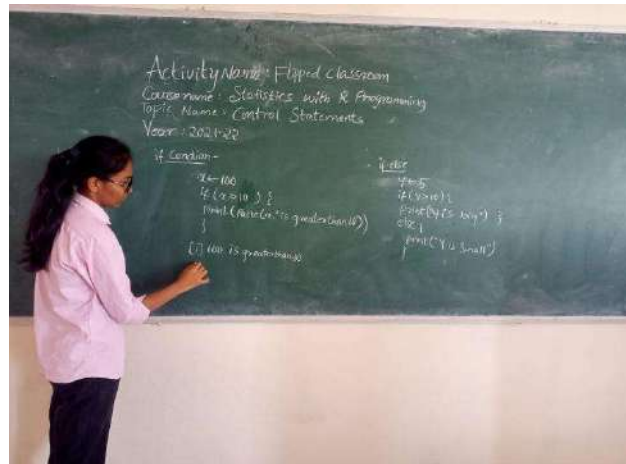 Activity Name: Flipped Classroom
Course name: Statistics with R Programming
Topic Name: Control Statements
Year: 2021-22
if Condition-
x← 100
if (x>10) {
print(paste(x,"is greaterthan10"))
}
[1] 100 is greaterthan10
if else
Y← 5
if(Y>10){
print("Y is big") }
else {
print("Y is Small")
}